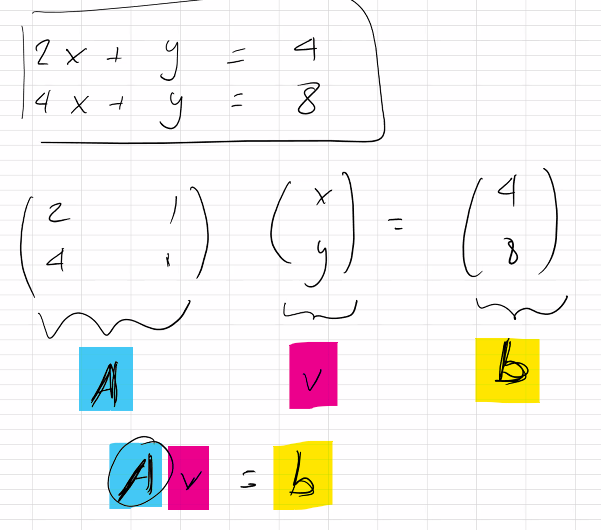 2x + y = 4
4x + y = 8
(2 1) (x) = (4)
(4 1) (y) (8)
A v b
A v = b